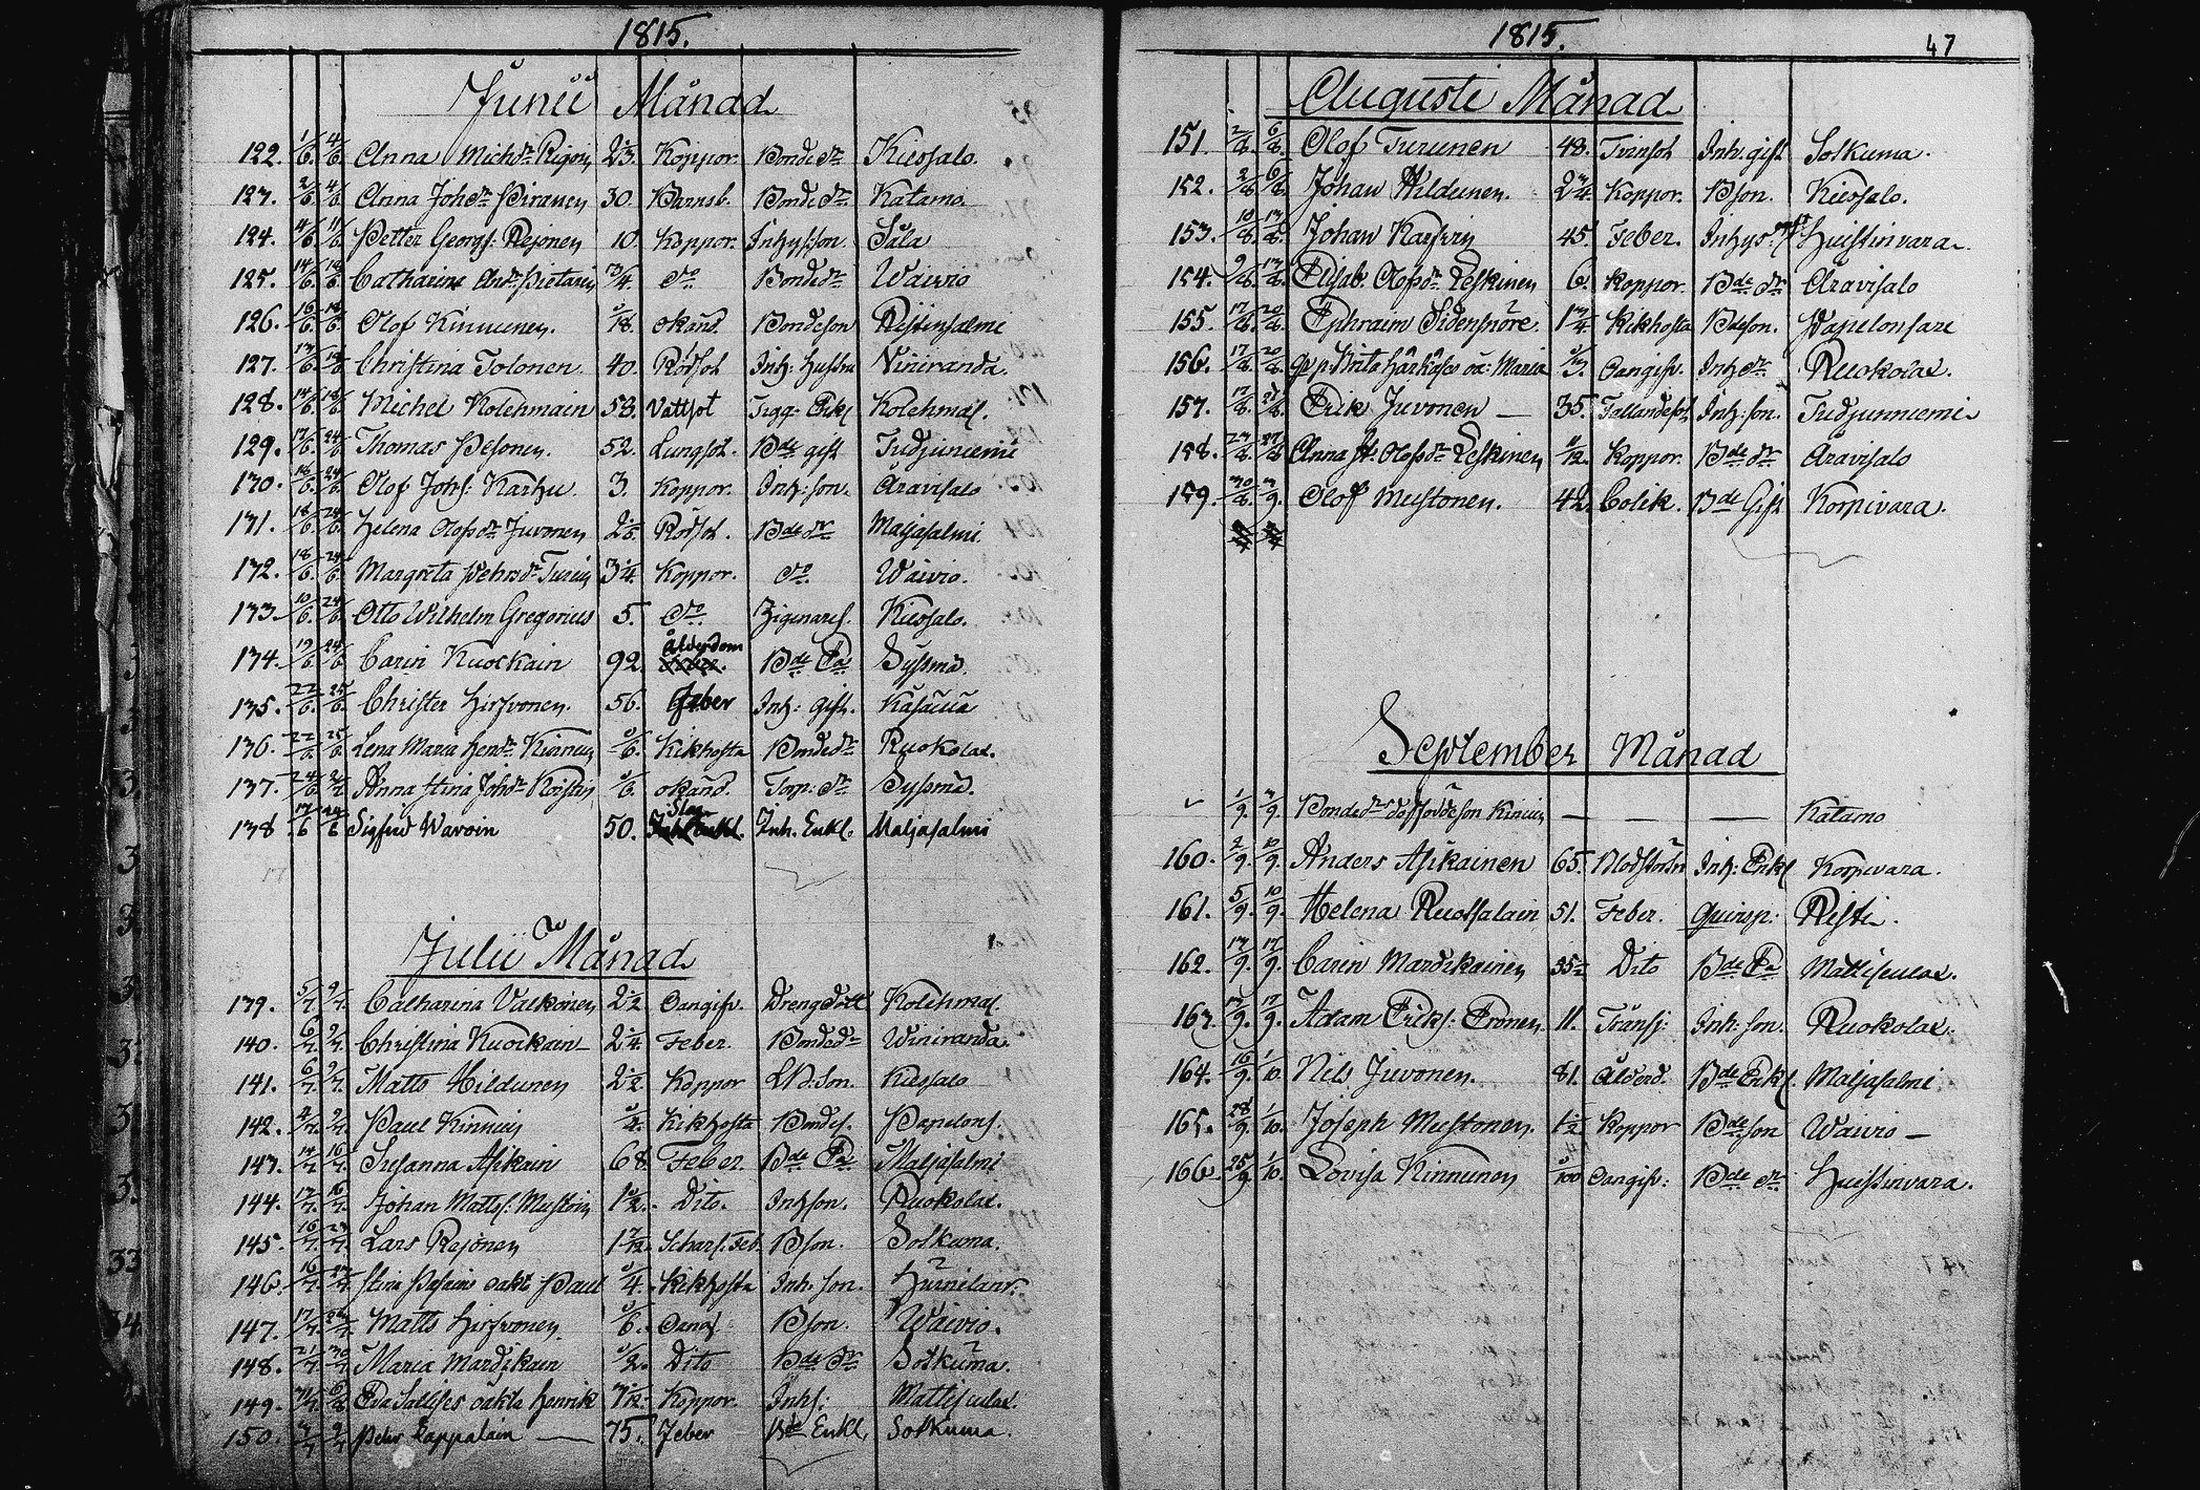 1815.
Junii Månad
122. 1/6. 4/6. Anna Michsdr Rigoin 2 1/3. Koppor. Bonde dr Kiessalo.
123. 2/6. 4/6. Anna Johdr Piranen 30. Barnsb. Bonde dr Katamo.
124. 4/6. 11/6. Petter Georgs: Rejonen 10. Koppor. Inhyss:son Sala
125. 14/6. 18/6. Catharina And:dr Pietarin 13/4. do Bondedr Waivio
126. 16/6. 18/6. Olof Kinnunen. /18. okänd. Bondeson Ristinsalmi
127. 13/6. Christina Tolonen 40. Rödsot Inh: hustru Viniranda.
128. 14/6. 18/6. Michel Kolehmain 58. Vattsot Tigg: Enkl Kolehmal.
129. 17/6. 24/6. Thomas Pesonen. 52. Lungsot. Bde gift Tudjuniemi
130. 18/6. 24/6. Olof Johs: Karhu 3. Koppor. Inh: son. Aravisalo
131. 18/6. 24/6. Helena Olofsdr Juvonen 2 Rödsot. Bde dr Maljasalmi
132. 18/6. 24/6. Margreta Pehrsdr Turuin 3 1/4. Koppor. do Waivio.
133. 10/6. 24/6. Otto Wilhelm Gregorius 5. do Zigenares. Kiessalo.
134. 19/6. 24/6. Carin Kuockain 92 Ålderdom Bde Ea Syssmä.
135. 22/6. 25/6. Christer Hirfvonen. 56. Feber Inh: gift.
136. 22/6. 25/6. Lena Maria Hendr Kinnuin /6. Kikhosta Bondedr Ruokolax.
137. 24/6. 2/7 Anna Stina Johdr Koistin /6. okänd. Torp: dr Syssmä.
138. 17/6 Sigfrid Waroin 50. Slag Inh. Enkl. Maljasalmi
Julii Månad
139. 5/7. 9/7. Catharina Valkonen 2 1/2 Oangifv. Drengdott Kolehmal.
140. 6/7. 9/7. Christina Kuockain 2 1/4. Feber. Bondedr Winiranda.
141. 6/7. 9/7. Matts Hildunen 2 1/2. Koppor LB: son. Kiessalo
142. 4/7. 9/7. Paul Kinnuin /2. Kikhosta Bondes. Papelons.
143. 14/7. 16/7. Susanna Asikain 68. Feber. Bde Ea Maljasalmi
144. 13/7. 16/7. Johan Matts: Mustoin 1 1/2. Dito. Inhson. Ruokolax.
145. 16/7. 23/7. Lars Rejonen 1 /12. Scharl. Feb. Bson. Sotkuma.
146. 16/7. 23/7. Stina Pesains oäkt Paul /4. Kikhosta Inh. son.
147. 17/7. Matts Hirfvonen. /6. Oangf. Bson. Waivio.
148. 21/7. 30/7. Maria Mardikain /2. Dito Bde dr Sotkuma.
149. 31/7. 6/8. Eva oäkta Henrik 3 /12. Koppor. Inhs: Mattisculax.
150. 3/7 9/7 Peter Lappalain — 75. Feber Bde Enkl, Sotkuma.
1815.
47
Augusti Månad
151. 2/8. 6/8. Olof Turunen 48. Tvinsot Inh. gift Sotkuma.
152. 2/8. 6/8. Johan Hildunen. 2 3/4. Koppor. Bson. Kiessalo.
153. 10/8. 13/8. Johan Karvin 45. Feber. Inhys: gift Huistinvara.
154. 9/8. 13/8. Elisab. Olofsdr Leskinen 6. Koppor. Bde dr Aravisalo
155. 17/8. 20/8. Ephraim Sidensnöre. 1 3/4. Kikhosta Bdeson. Papelonsari
156. 17/8. 20/8. qvp: Brita Härkäses oä: Maria /3. Oangifv. Inhdr Ruokolax.
157. 17/8. 27/8. Erik Juvonen — 35. Fallandesot Inh: son. Tudjunniemi
158. 23/8. 27/8. Anna St. Olofsdr Leskinen 11/12. Koppor. Bde dr Aravisalo
159. 30/8. 3/9. Olof Mustonen. 42. Colik. Bde Gift Korpivara.
September Månad
1/9. 3/9. Bondedrs dödfödde son Kinnuin — — — Katamo
160. 2/9. 10/9. Anders Asikainen 65. Blodstörtn Inh: Enkl Korpivara.
161. 5/9. 10/9. Helena Ruotsalain 51. Feber. Qvinsp: Risti.
162. 13/9. 17/9. Carin Mardikainen 35 1/2 Dito Bde Ea Mattisculax.
163. 13/9. 17/9. Adam Eriks: Eronen. 11. Transj: Inh: son. Ruokolax.
164. 16/9. 1/10. Nils Juvonen. 81. Ålderd. Bde Enkl. Maljasalmi
165. 28/9. 1/10. Joseph Mustonen. 1 1/2 Koppor Bde son Waivio —
166 25/9. 1/10. Lovisa Kinnunen /100 Oangifv: Bde dr Huistinvara.